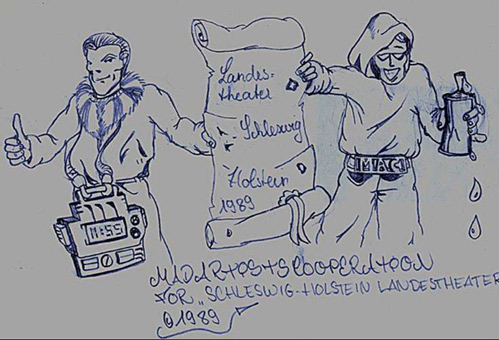 Landes-
theater
Schleswig
Holstein
1989
11:55
MAC
MADARTISTSCOOPERATOON
FOR "SCHLESWIG-HOLSTEIN LANDESTHEATER
©1989